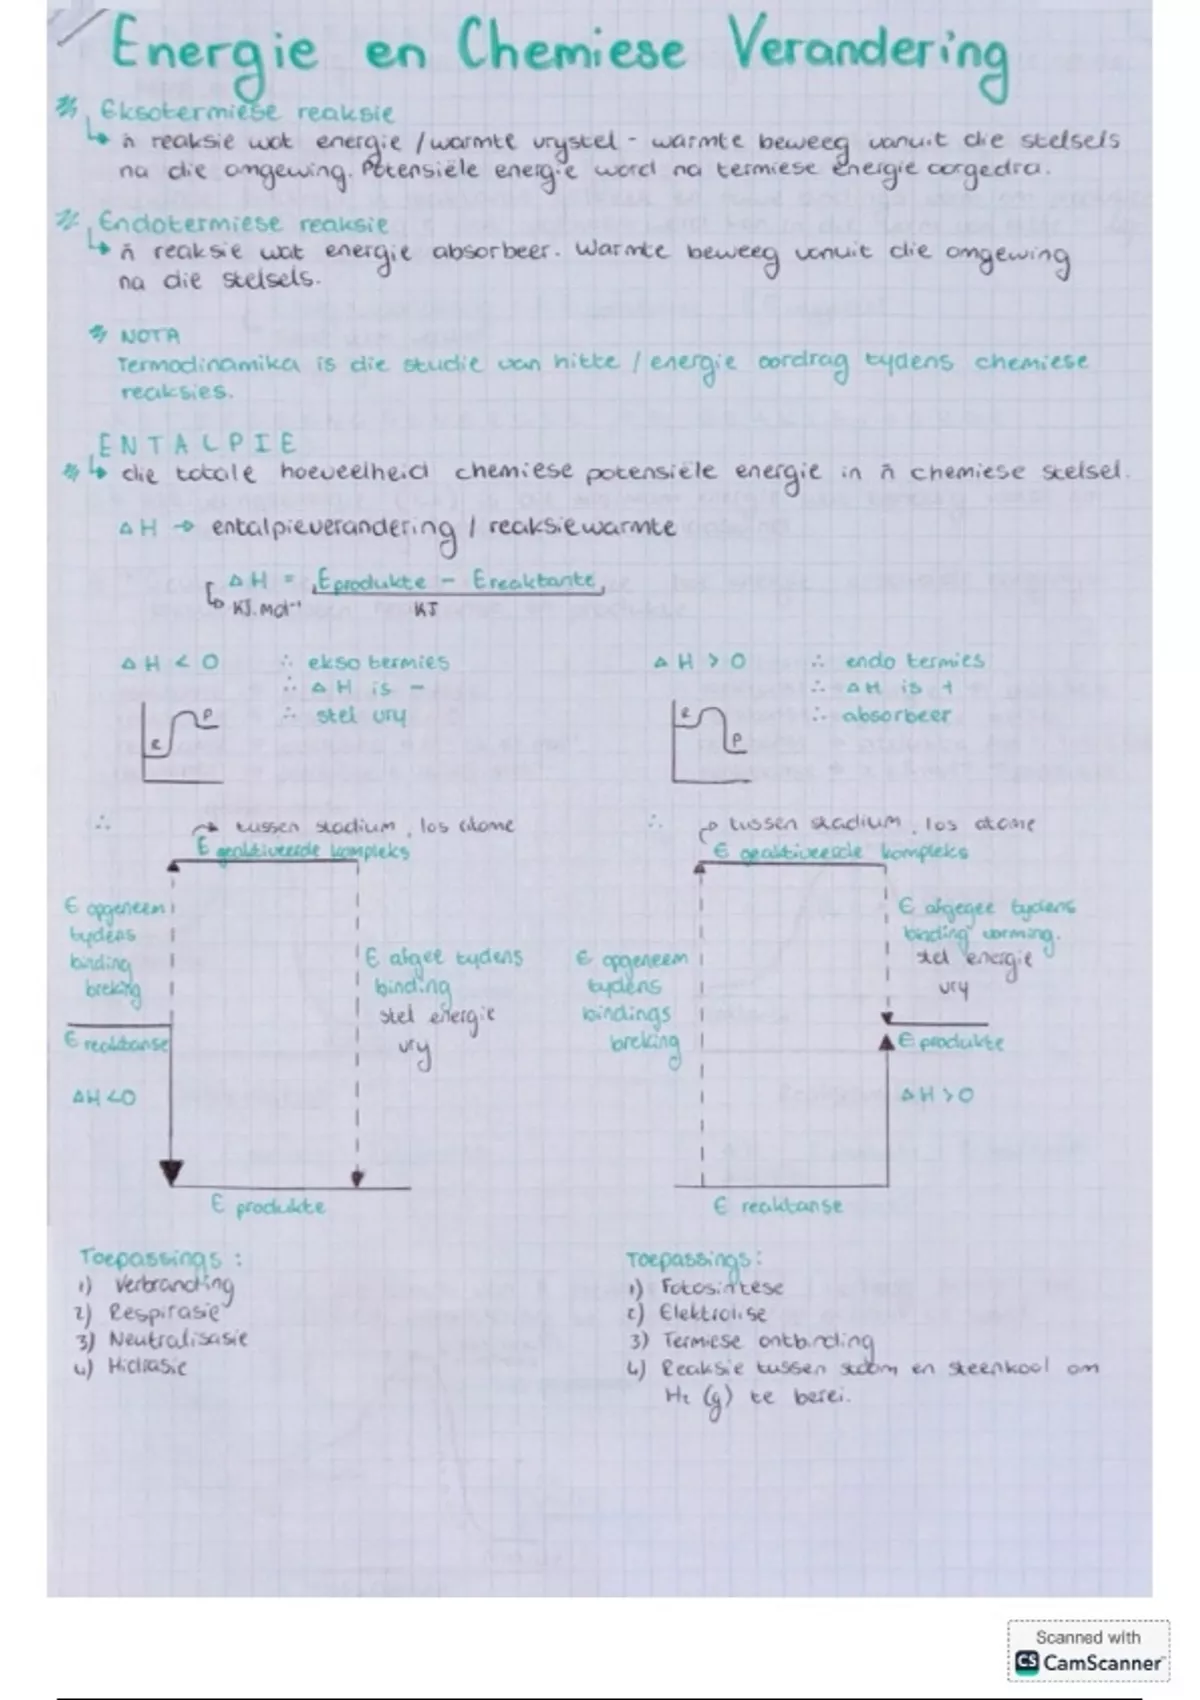 Energie en Chemiese Verandering
Eksotermiese reaksie
ñ reaksie wat energie / warmte vrystel - warmte beweeg vanuit die stelsels
na die omgewing. Potensiële energie word na termiese energie oorgedra.
Endotermiese reaksie
ñ reaksie wat energie absorbeer. Warmte beweeg vanuit die omgewing
na die stelsels.
NOTA
Termodinamika is die studie van hitte / energie oordrag tydens chemiese
reaksies.
ENTALPIE
die totale hoeveelheid chemiese potensiële energie in ñ chemiese stelsel.
ΔH → entalpieverandering / reaksiewarmte
ΔH = Eprodukte - Ereaktante
KJ.mol⁻¹ KJ
ΔH < 0 ∴ ekso termies
∴ ΔH is -
∴ stel vry
R P
ΔH > 0 ∴ endo termies
∴ ΔH is +
∴ absorbeer
R P
∴ → tussen stadium, los atome
E geaktiveerde kompleks
E opgeneem
tydens
binding
breking
E afgee tydens
binding
stel energie
vry
E reaktanse
ΔH <0
E produkte
∴ → tussen stadium, los atome
E geaktiveerde kompleks
E opgeneem
tydens
bindings
breking
E afgegee tydens
binding vorming.
stel energie
vry
E produkte
ΔH >0
E reaktanse
Toepassings:
1) Verbranding
2) Respirasie
3) Neutralisasie
4) Hidrasie
Toepassings:
1) Fotosintese
2) Elektrolise
3) Termiese ontbinding
4) Reaksie tussen stoom en steenkool om
H₂ (g) te berei.
Scanned with
CS CamScanner